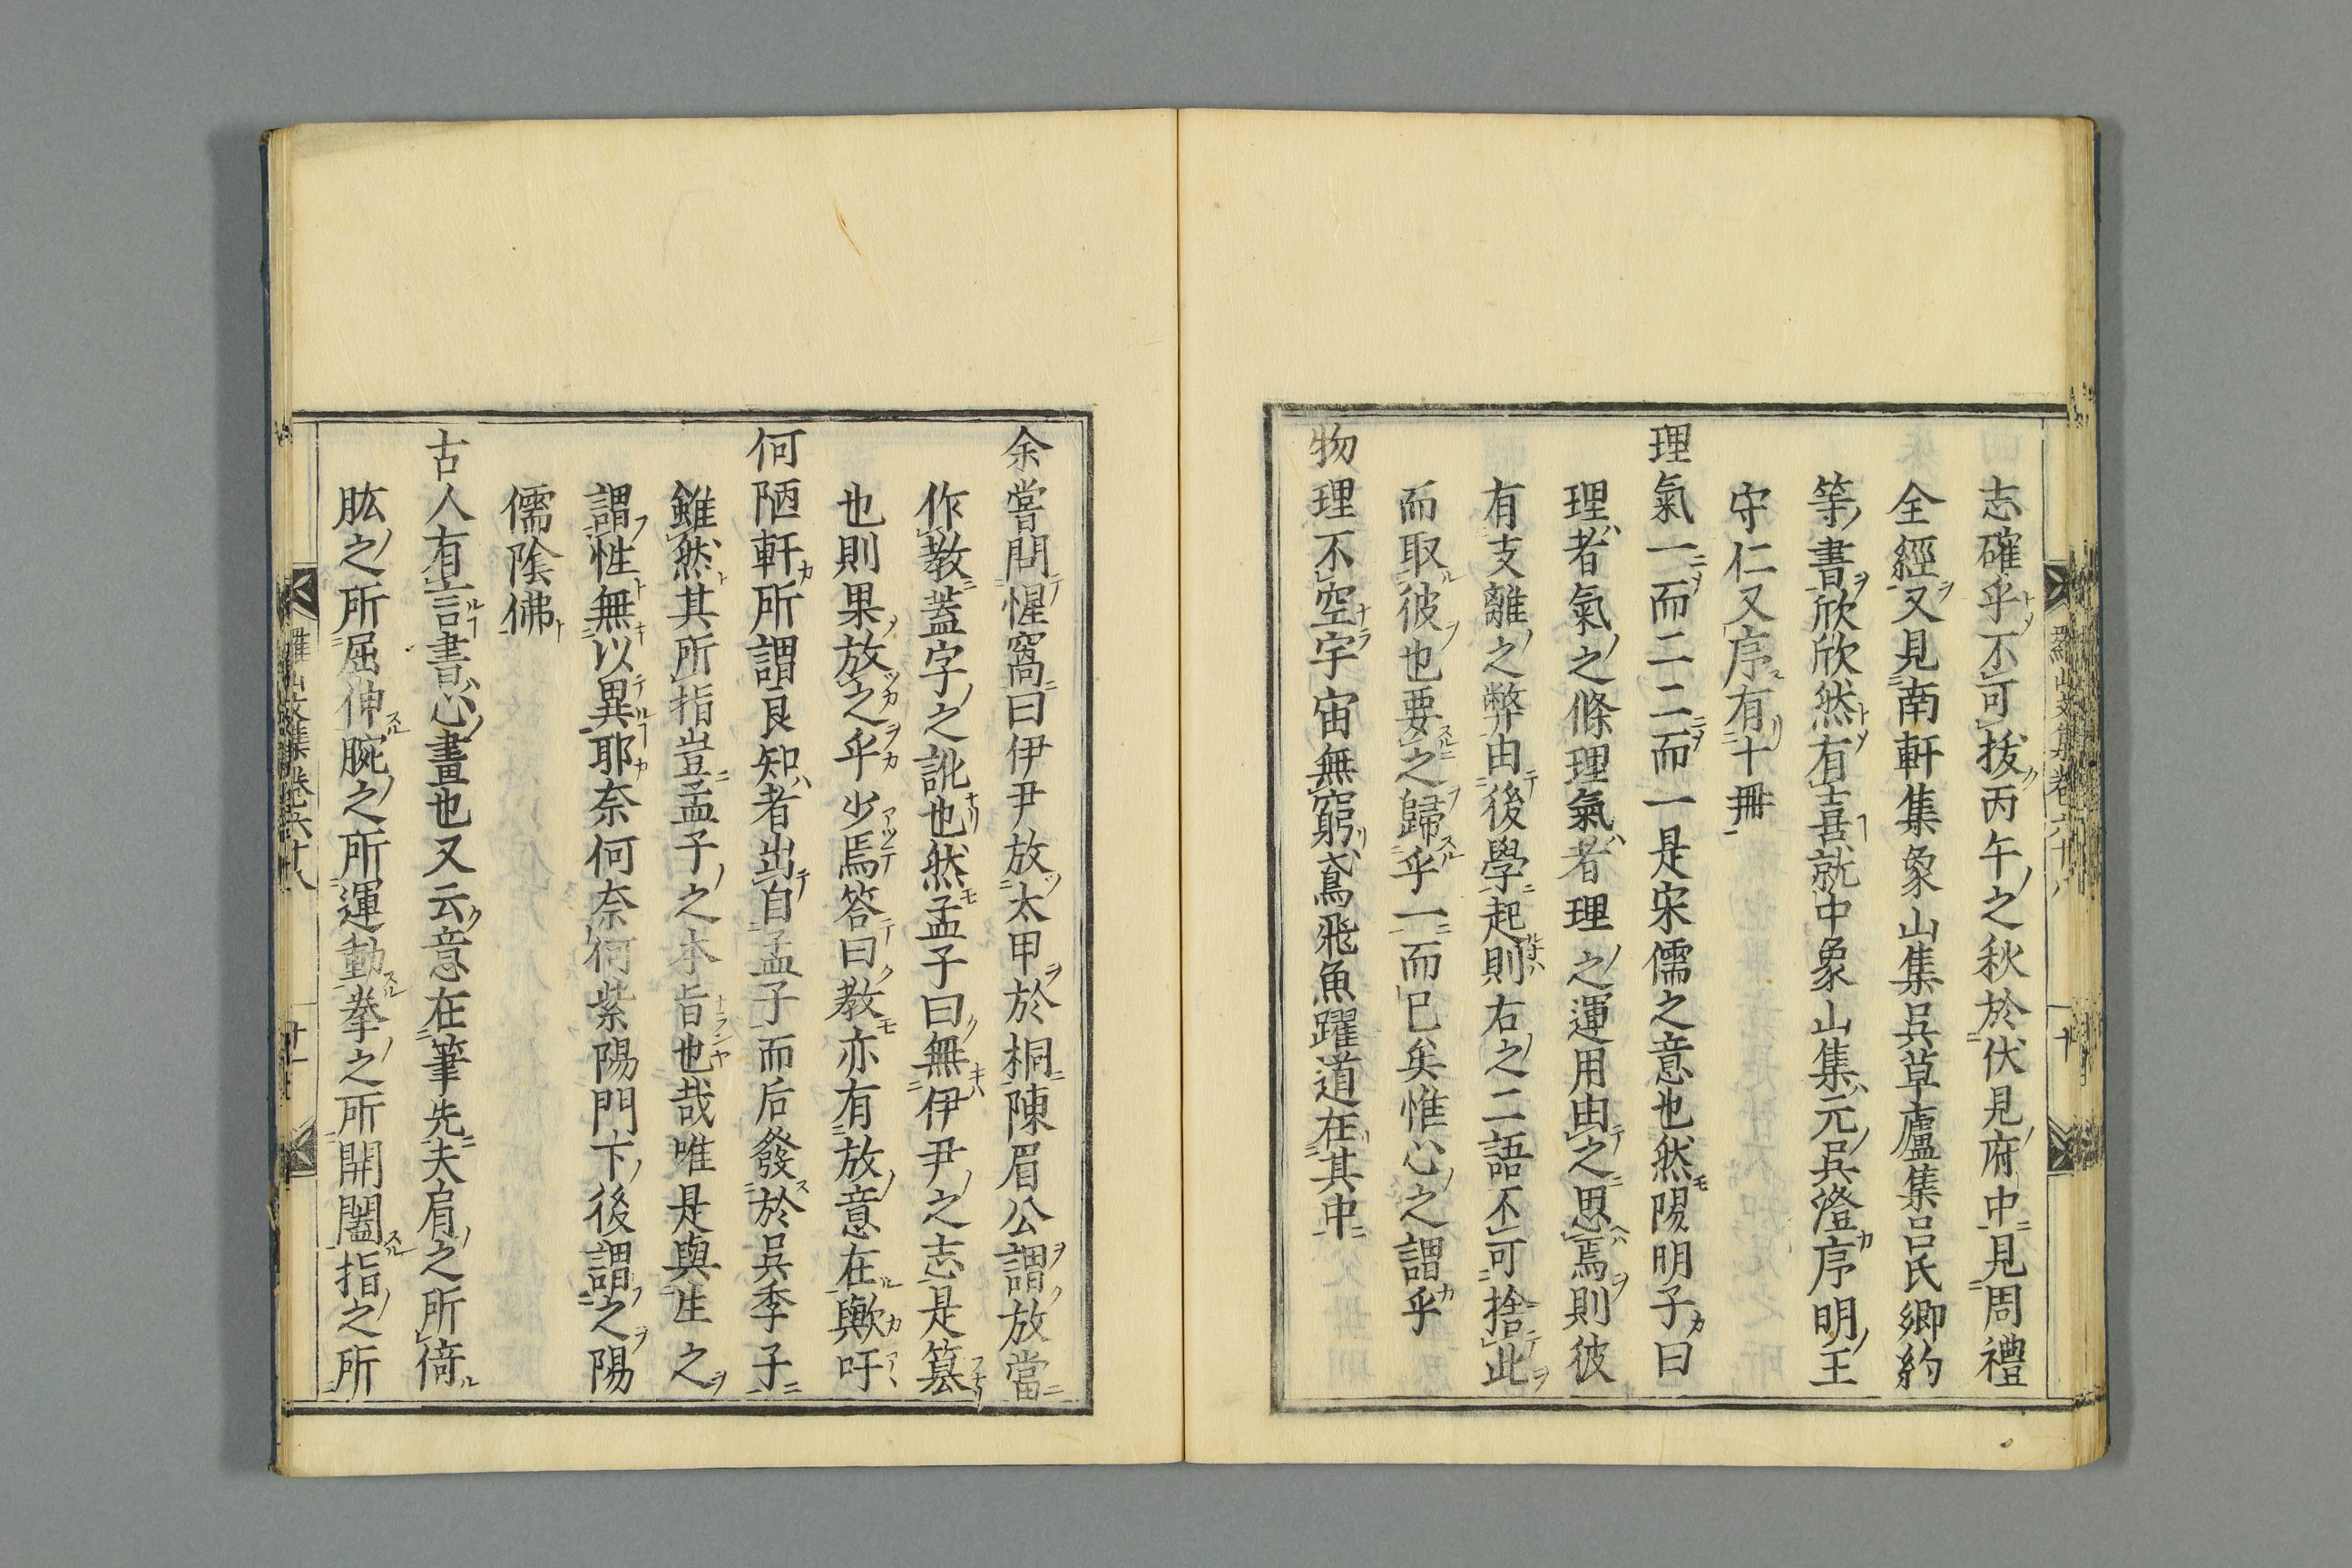 志確乎不可拔丙午之秋於伏見府中見周禮
全經又見南軒集象山集吳草廬集呂氏鄉約
等書欣欣然有喜就中象山集元吳澄序明王
守仁又序有十冊
理氣一而二二而一是宋儒之意也然陽明子曰
理者氣之條理氣者理之運用由之思焉則彼
有支離之弊由後學起則右之二語不可捨此
而取彼也要之歸乎一而已矣惟心之謂乎
物理不空宇宙無窮鳶飛魚躍道在其中
羅山文集卷六十八
十
余嘗問惺窩曰伊尹放太甲於桐陳眉公謂放當
作教蓋字之訛也然孟子曰無伊尹之志是篡
也則果放之乎少焉答曰教亦有放意在歟吁
何陋軒所謂良知者出自孟子而后發於吳季子
雖然其所指豈孟子之本旨也哉唯是與生之
謂性無以異耶奈何奈何紫陽門下後謂之陽
儒陰佛
古人有言書心畫也又云意在筆先夫肩之所倚
肱之所屈伸腕之所運動拳之所開闔指之所
羅山文集卷六十八
十一